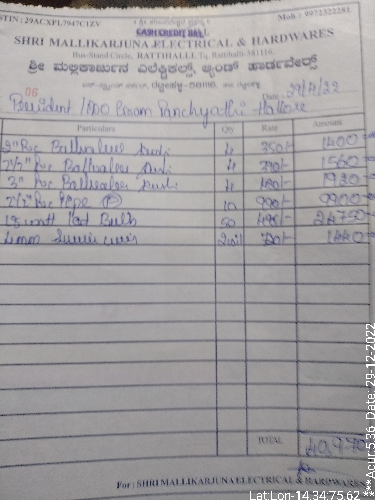 STIN : 29ACXPL7947C1ZV
CASH/CREDIT BILL
Mob : 9972322281
SHRI MALLIKARJUNA ELECTRICAL & HARDWARES
Bus-Stand Circle, RATTIHALLI, Tq. Rattihalli-581116.
ಶ್ರೀ ಮಲ್ಲಿಕಾರ್ಜುನ ಎಲೆಕ್ಟ್ರಿಕಲ್ಸ್ ಆ್ಯಂಡ್ ಹಾರ್ಡವೇರ್ಸ್
06
Date : 29/4/22
President / PDO Gram Panchyathi
Particulars Qty Rate Amount
2" Pvc 4 350/- 1400
2 1/2" Pvc 4 390/- 1560
3" Pvc 4 480/- 1920
2 1/2" Pvc Pipe 10 990/- 9900
watt Led Bulb 50 24750
4 mm 720/- 1440
TOTAL 40,970
For : SHRI MALLIKARJUNA ELECTRICAL & HARDWARES
Lat Lon-14.34:75.62 ***Acur:5.36 Date: 29-12-2022